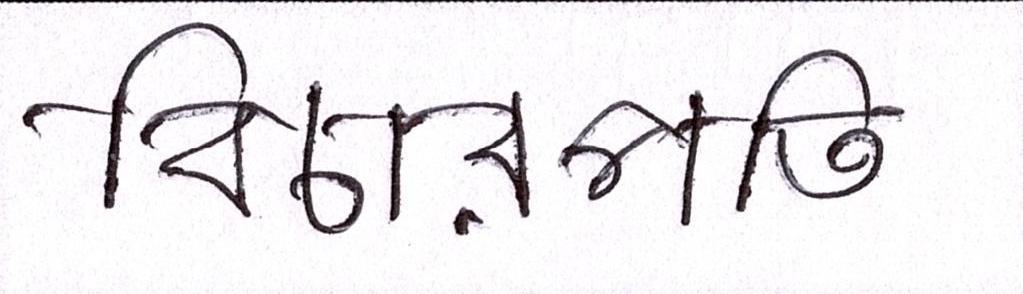 বিচারপতি